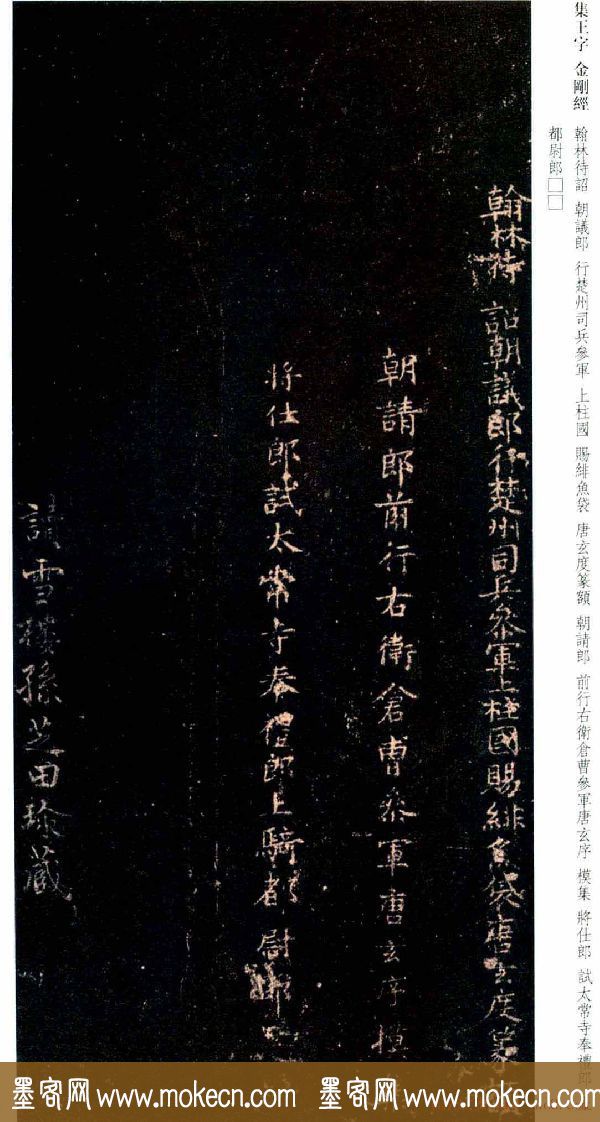 集王字 金剛經 翰林待詔 朝議郎 行楚州司兵參軍 上柱國 賜緋魚袋 唐玄度篆額 朝請郎 前行右衛倉曹參軍唐玄序 模集 將仕郎 試太常寺奉禮郎
都尉郎□□
翰林待詔朝議郎行楚州司兵參軍上柱國賜緋魚袋唐玄度篆
朝請郎前行右衛倉曹參軍唐玄序模
將仕郎試太常寺奉禮郎上騎都尉
讀雪樓孫芝田珍藏
墨客网 www.mokecn.com 墨客网 www.mokecn.com